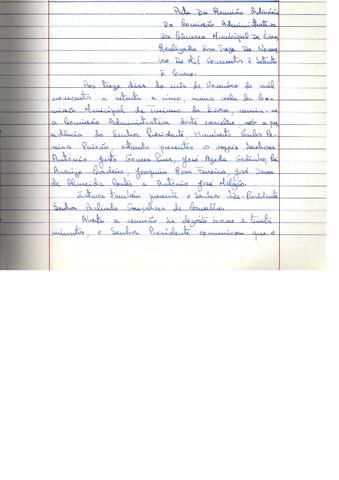 Acta Da Reunião Ordinária
Da Comissão Administrativa
Da Câmara Municipal De Évora
Realizada Em Treze De Novem
bro De Mil Novecentos E Setenta
E Cinco:
Aos treze dias do mês de Novembro de mil
novecentos e setenta e cinco, numa sala da Co-
missão Municipal de Turismo de Évora, reuniu-se
a Comissão Administrativa deste concelho, sob a pre
sidência do Senhor Presidente, Humberto Carlos Pe
reira Paixão, estando presentes os vogais Senhores
António Justo Gomes Pires, José Ageda Godinho,
Araújo Cordeiro, Joaquim Rosa Ferreira, José
de Almeida Pontes e António José Melgão.
Estava também presente o Senhor Vice-Presidente,
Senhor Arlindo Gonçalves de Carvalho.
Aberta a reunião às dezoito horas e trinta
minutos, o Senhor Presidente comunicou que o